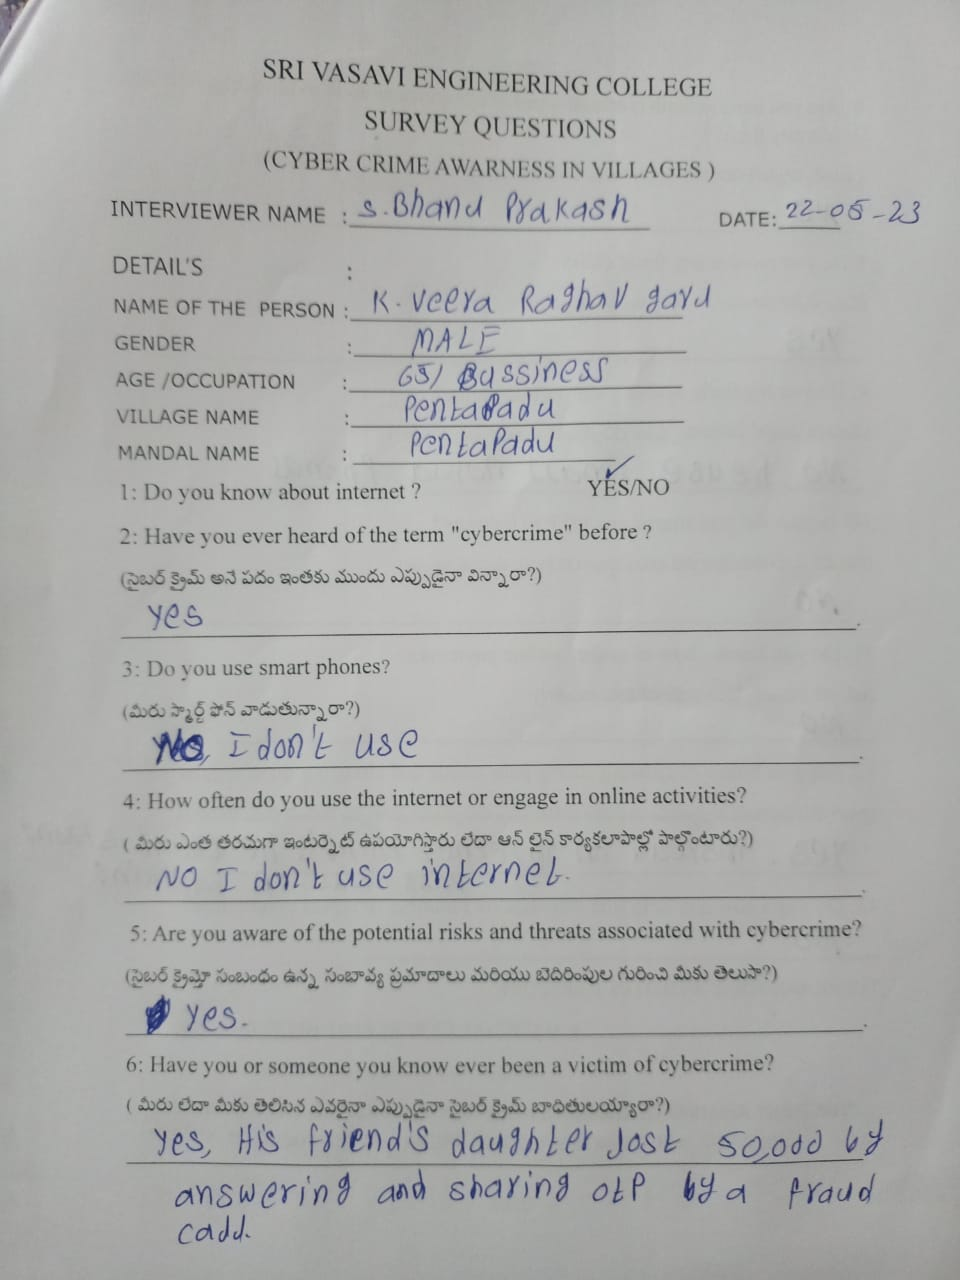 SRI VASAVI ENGINEERING COLLEGE
SURVEY QUESTIONS
(CYBER CRIME AWARNESS IN VILLAGES )
INTERVIEWER NAME : S. Bhanu Prakash DATE: 22-05-23
DETAIL'S :
NAME OF THE PERSON : K. Veera Raghav garu
GENDER : MALE
AGE /OCCUPATION : 65/ Bussiness
VILLAGE NAME : Pentapadu
MANDAL NAME : Pentapadu
1: Do you know about internet ? YES/NO
2: Have you ever heard of the term "cybercrime" before ?
(సైబర్ క్రైమ్ అనే పదం ఇంతకు ముందు ఎప్పుడైనా విన్నారా?)
Yes
3: Do you use smart phones?
(మీరు స్మార్ట్ ఫోన్ వాడుతున్నారా?)
No, I don't use
4: How often do you use the internet or engage in online activities?
( మీరు ఎంత తరచుగా ఇంటర్నెట్ ఉపయోగిస్తారు లేదా ఆన్ లైన్ కార్యకలాపాల్లో పాల్గొంటారు?)
NO I don't use internet.
5: Are you aware of the potential risks and threats associated with cybercrime?
(సైబర్ క్రైమ్తో సంబంధం ఉన్న సంబావ్య ప్రమాదాలు మరియు బెదిరింపుల గురించి మీకు తెలుసా?)
Yes.
6: Have you or someone you know ever been a victim of cybercrime?
( మీరు లేదా మీకు తెలిసిన ఎవరైనా ఎప్పుడైనా సైబర్ క్రైమ్ బాధితులయ్యారా?)
Yes, His friend's daughter lost 50,000 by
answering and sharing OTP by a fraud